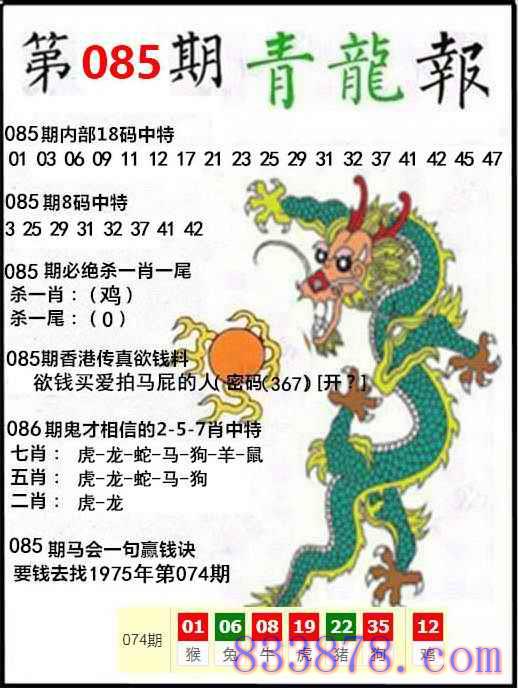 第085期青龍報
085期内部18码中特
01 03 06 09 11 12 17 21 23 25 29 31 32 37 41 42 45 47
085期8码中特
3 25 29 31 32 37 41 42
085 期必绝杀一肖一尾
杀一肖：(鸡)
杀一尾：(0)
085期香港传真欲钱料
欲钱买爱拍马屁的人(密码(367)[开？]
086期鬼才相信的2-5-7肖中特
七肖： 虎-龙-蛇-马-狗-羊-鼠
五肖： 虎-龙-蛇-马-狗
二肖： 虎-龙
085期马会一句赢钱诀
要钱去找1975年第074期
074期 01 06 08 19 22 35 12
猴 兔 牛 虎 猪 狗 鸡
833878.com